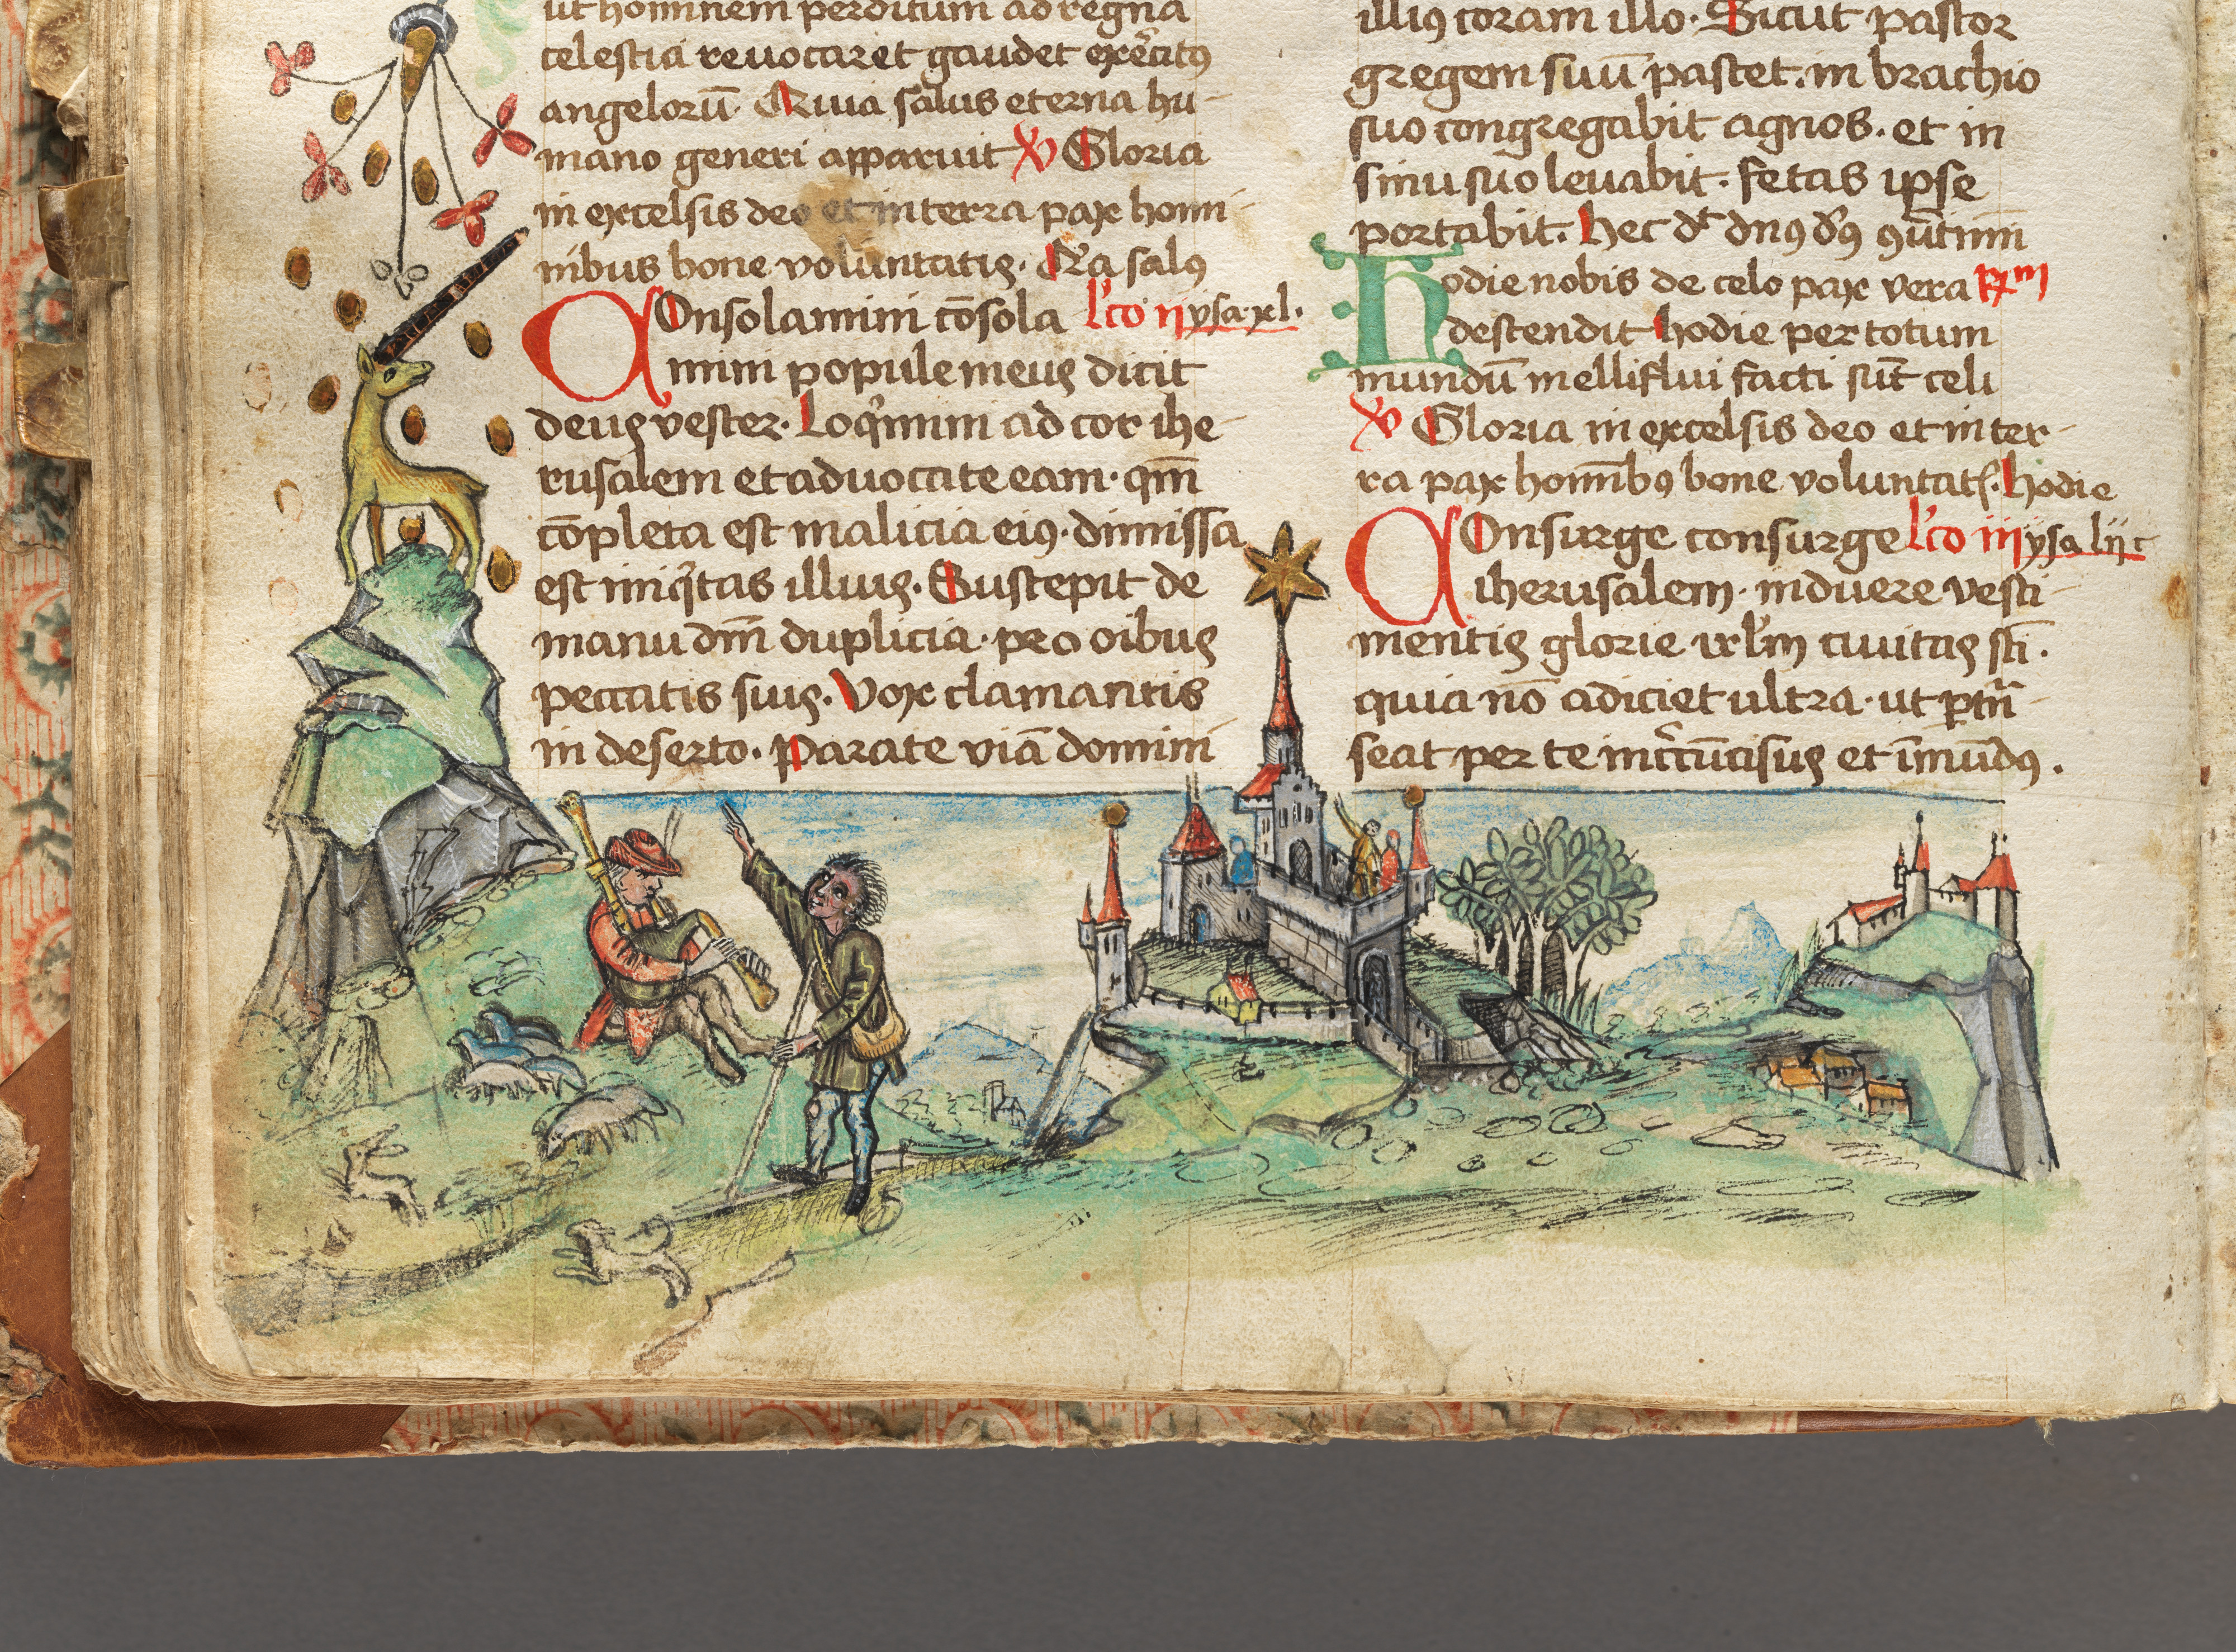 ut hominem perditum ad regna
celestia reuocaret gaudet exẽcitꝰ
angelorū Quia salus eterna hu-
mano generi apparuit ℣ Gloria
in excelsis deo et in terra pax homi-
nibus bone voluntatis. Q̃a salꝰ
COnsolamini cōsola lc̄o ij ysa xl.
mini popule meus dicit
deus vester. Loqͥmini ad cor ihe-
rusalem et aduocate eam. qm̄
cōpleta est malicia eiꝰ. dimissa
est iniqͥtas illius. Suscepit de
manu dm̄ duplicia. pro oibus
peccatis suis. Vox clamantis
in deserto. Parate viā domini
illiꝰ coram illo. Sicut pastor
gregem suū pascet. in brachio
suo congregabit agnos. et in
sinu suo leuabit. fetas ipse
portabit. Hec dt̄ dnꝰ
Hodie nobis de celo pax vera
descendit hodie per totum
mundū melliflui facti sūt celi
℣ Gloria in excelsis deo et in ter-
ra pax homībꝰ bone voluntatꝭ. Hodie
COnsurge consurge lc̄o iij ysa lij c
iherusalem. induere vesti-
mentis glorie irlm̄ ciuitas sc̄i.
quia nō adiciet ultra. ut ptñ-
seat per te incͬcūcisus et īmūdꝰ.